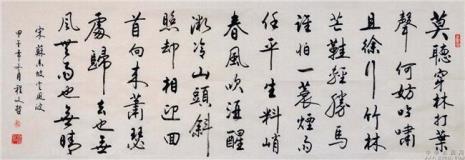 莫聽穿林打葉
聲何妨吟嘯
且徐行竹杖
芒鞋輕勝馬
誰怕一蓑煙雨
任平生料峭
春風吹酒醒
微冷山頭斜
照卻相迎回
首向來蕭瑟
處歸去也無
風雨也無晴
宋蘇東坡定風波
甲子年冬月